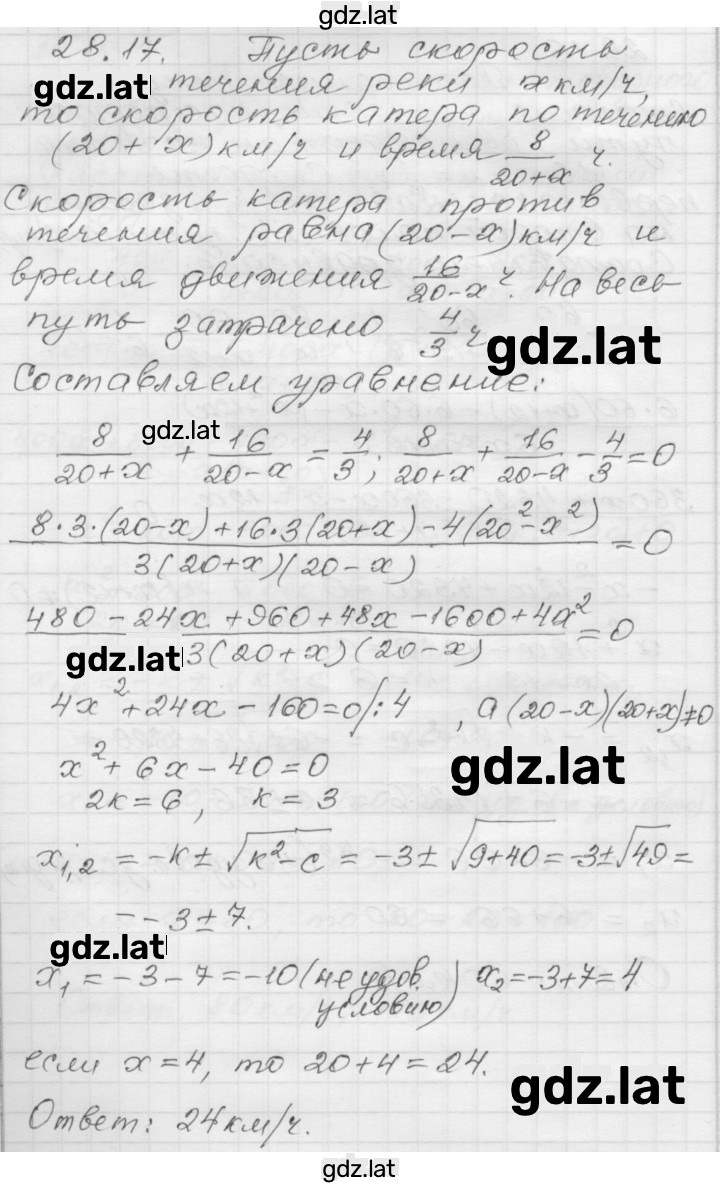 gdz.lat
28.17. Пусть скорость
gdz.lat течения реки x км/ч,
то скорость катера по течению
(20+x) км/ч и время 8/(20+x) ч.
Скорость катера против
течения равна (20-x) км/ч и
время движения 16/(20-x) ч. На весь
путь затрачено 4/3 ч
gdz.lat
Составляем уравнение:
gdz.lat
8/(20+x) + 16/(20-x) = 4/3; 8/(20+x) + 16/(20-x) - 4/3 = 0
(8·3·(20-x)+16·3(20+x)-4(20²-x²))/(3(20+x)(20-x)) = 0
(480-24x+960+48x-1600+4x²)/(3(20+x)(20-x)) = 0
gdz.lat
4x²+24x-160=0/:4 , а (20-x)(20+x)≠0
x²+6x-40=0
gdz.lat
2k=6, k=3
x₁,₂ = -k±√(k²-c) = -3±√(9+40) = -3±√49 =
= -3±7.
gdz.lat
x₁ = -3-7 = -10 (не удов. условию) x₂ = -3+7 = 4
если x=4, то 20+4=24.
gdz.lat
Ответ: 24 км/ч.
gdz.lat